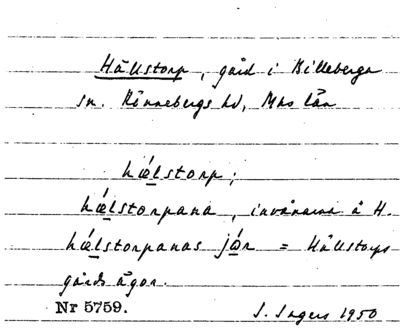 Hällstorp, gård i Billeberga
sn. Rönnebergs hd, Mns län
hǽlstorp;
hǽlstorpana, invånarna å H.
hǽlstorpanas jo̲r = Hällstorps
gårds ägor.
Nr 5759. I. Ingers 1950